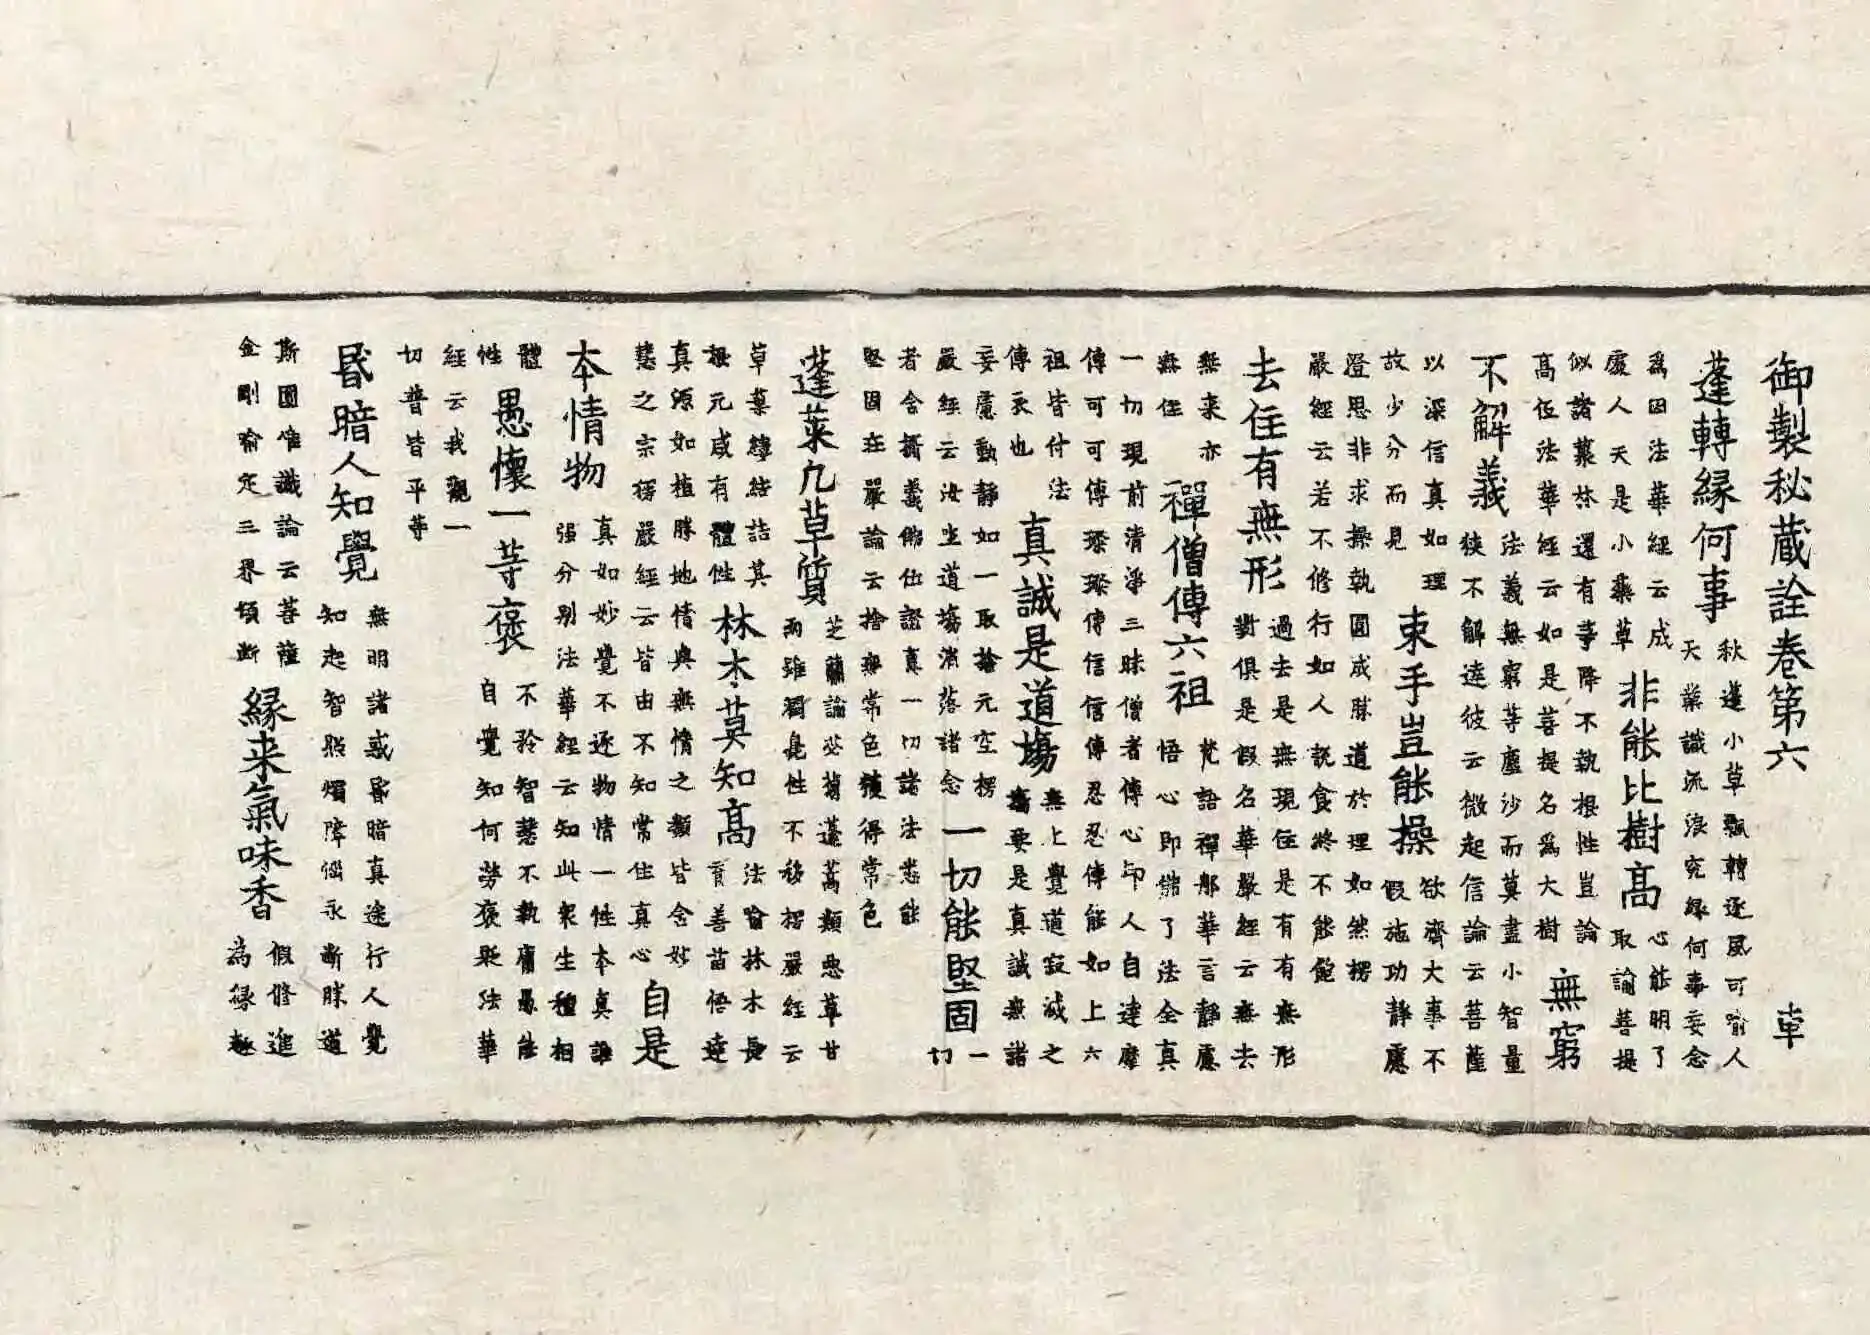 御製秘蔵詮卷第六 車
蓬轉緣何事
秋蓬小草飄轉逐風可喻人
天業識流浪究緣何事妄念
爲因法華經云成
處人天是小藥草
非能比樹髙
心能明了
取諭菩提
似諸叢林還有等降不執根性豈論
髙位法華經云如是菩提名爲大樹
無窮
不解義
法義無窮等塵沙而莫盡小智量
狹不解達彼云微起信論云菩薩
以深信真如理
故少分而見
束手豈能操
欲齊大事不
假施功靜慮
澄思非求操執圓成勝道於理如然楞
嚴經云若不修行如人説食終不能飽
去住有無形
過去是無現住是有有無形
對俱是假名華嚴經云無去
無来亦
無住
禪僧傳六祖
梵語禪那華言靜慮
悟心即能了法全真
一切現前清淨三昧僧者傳心印人自達摩
傳可可傳璨璨傳信信傳忍忍傳能如上六
祖皆付法
傳衣也
真誠是道場
無上覺道寂滅之
要是真誠無諸
妄慮動靜如一取捨元空楞
嚴經云汝坐道場消落諸念
一切能堅固
一
切
者含攝義佛仕證真一切諸法悉能
堅固在嚴論云捨無常色獲得常色
蓬莱凢草質
芝蘭論蓬蒿類惡草甘
雨雖潤是性不移楞嚴經云
草藁縷結詰其
根元咸有體性
林木莫知髙
法喻林木長
育善苗悟達
真源如植勝地情與無情之類皆含妙
慧之宗楞嚴經云皆由不知常住真心
自是
本情物
真如妙覺不逐物情一性本真誰
强分别法華經云知此衆生種相
體
性
愚懷一等褒
不矜智慧不執庸愚能
自覺知何勞褒貶法華
經云我觀一
切普皆平等
昏暗人知覺
無明諸惑昏暗真途行人覺
知起智照燭障惱永斷勝道
斯圓唯識論云菩薩
金剛喻定三界頓斷
緣来氣味香
假修進
為緣趣